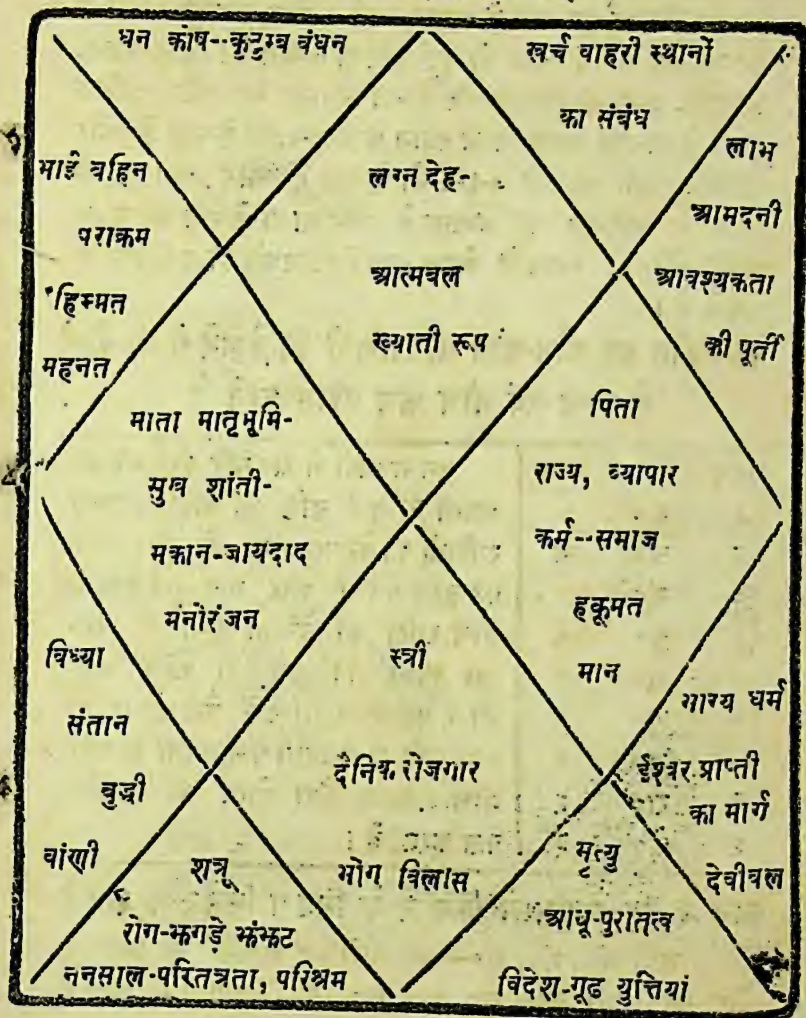 धन कोष--कुटुम्ब वंधन
खर्च वाहरी स्थानों
का संबंध
लाभ
आमदनी
आवश्यकता
की पूर्ती
भाई वहिन
पराक्रम
हिम्मत
महनत
लग्न देह-
आत्मवल
ख्याती रूप
माता मातृभूमि-
सुख शांती-
मकान-जायदाद
मंनोरंजन
पिता
राज्य, व्यापार
कर्म--समाज
हकूमत
मान
विध्या
संतान
बुद्धी
वांणी
स्त्री
दैनिक रोजगार
भोग विलास
भाग्य धर्म
ईश्वर प्राप्ती
का मार्ग
देवीवल
शत्रू
रोग-झगड़े झंझट
ननसाल-परितन्त्रता, परिश्रम
मृत्यु
आयू-पुरातत्व
विदेश-गूढ युत्तियां